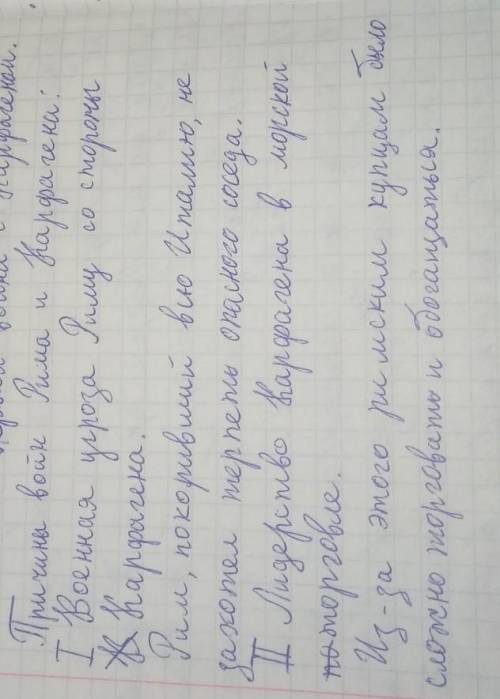 война с Карфагеном.
Причины войн Рима и Карфагена:
I Военная угроза Риму со стороны
Карфагена.
Рим, покоривший всю Италию, не
захотел терпеть опасного соседа.
II Лидерство Карфагена в морской
торговле.
Из-за этого римским купцам было
сложно торговать и обогащаться.